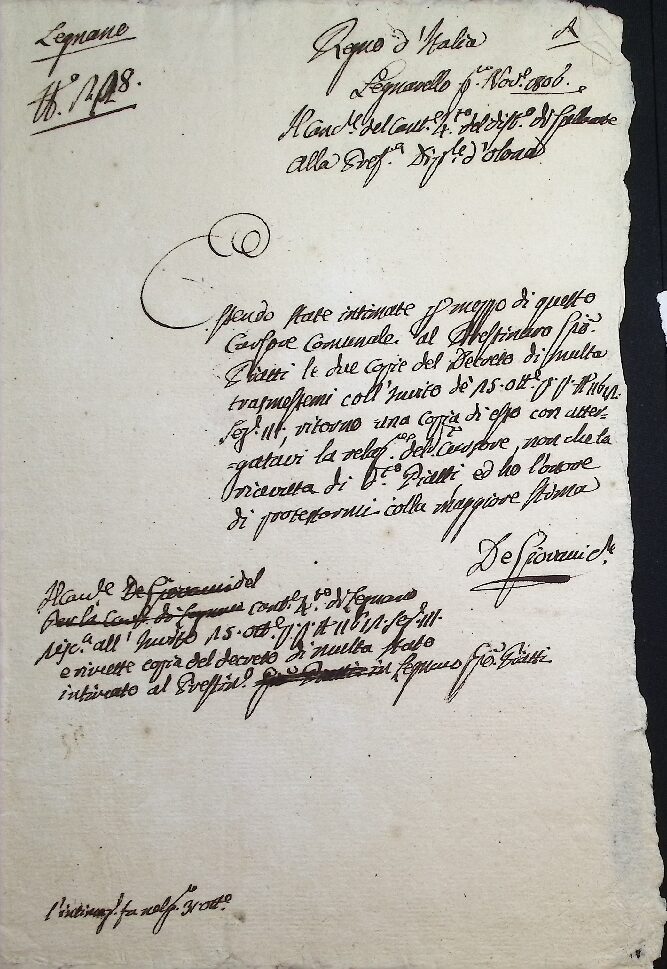 Legnano
N.º 1218.
Regno d'Italia
A
Legnarello p.º Nov.e 1806.
Il Canc.e del Cant.e 4.to del dist.o di Gallarate
Alla Pref.a Dip.le d'Olona
Essendo state intimate p. mezzo di questo
Cursore Comunale al Prestinaro Gio.
Piatti le due copie del Decreto di multa
trasmessemi coll'Invito de' 15. ott.e p.p. N.º 11612.
Sez. III, ritorno una copia di esso con atter-
-gatavi la relaz.e del Cursore, non che la
ricevuta di d.to Piatti, ed ho l'onore
di protestarmi colla maggiore stima
De Giovani C.e
Il Canc.e De Giovani del
cant.e 4.to di Legnano
risp.a all'Invito 15. ott.e p.p. N.º 11612. Sez. III.
e rimette copia del decreto di multa stato
intimato al Prestin.o in Legnano Gio. Piatti
l'intimaz. fu nel g. 31 ott.e